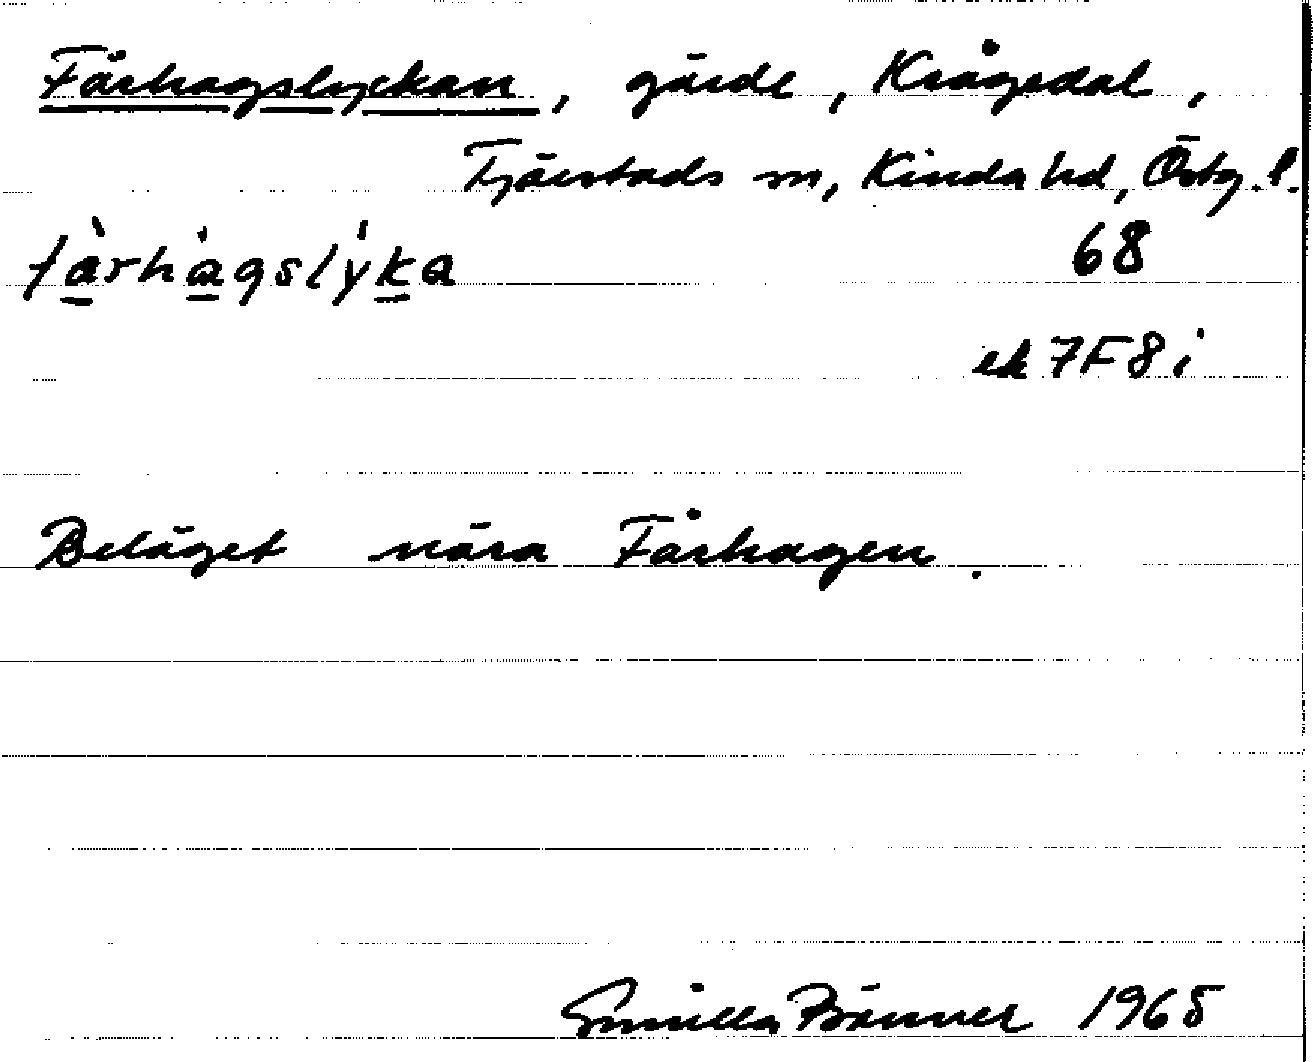 Fårhagslyckan, gärde, Krågedal,
Tjärstads sn, Kinda hd, Östg. l.
fårhagslyka
68
ek 7F8i
Beläget nära Fårhagen.
Gunilla 1965